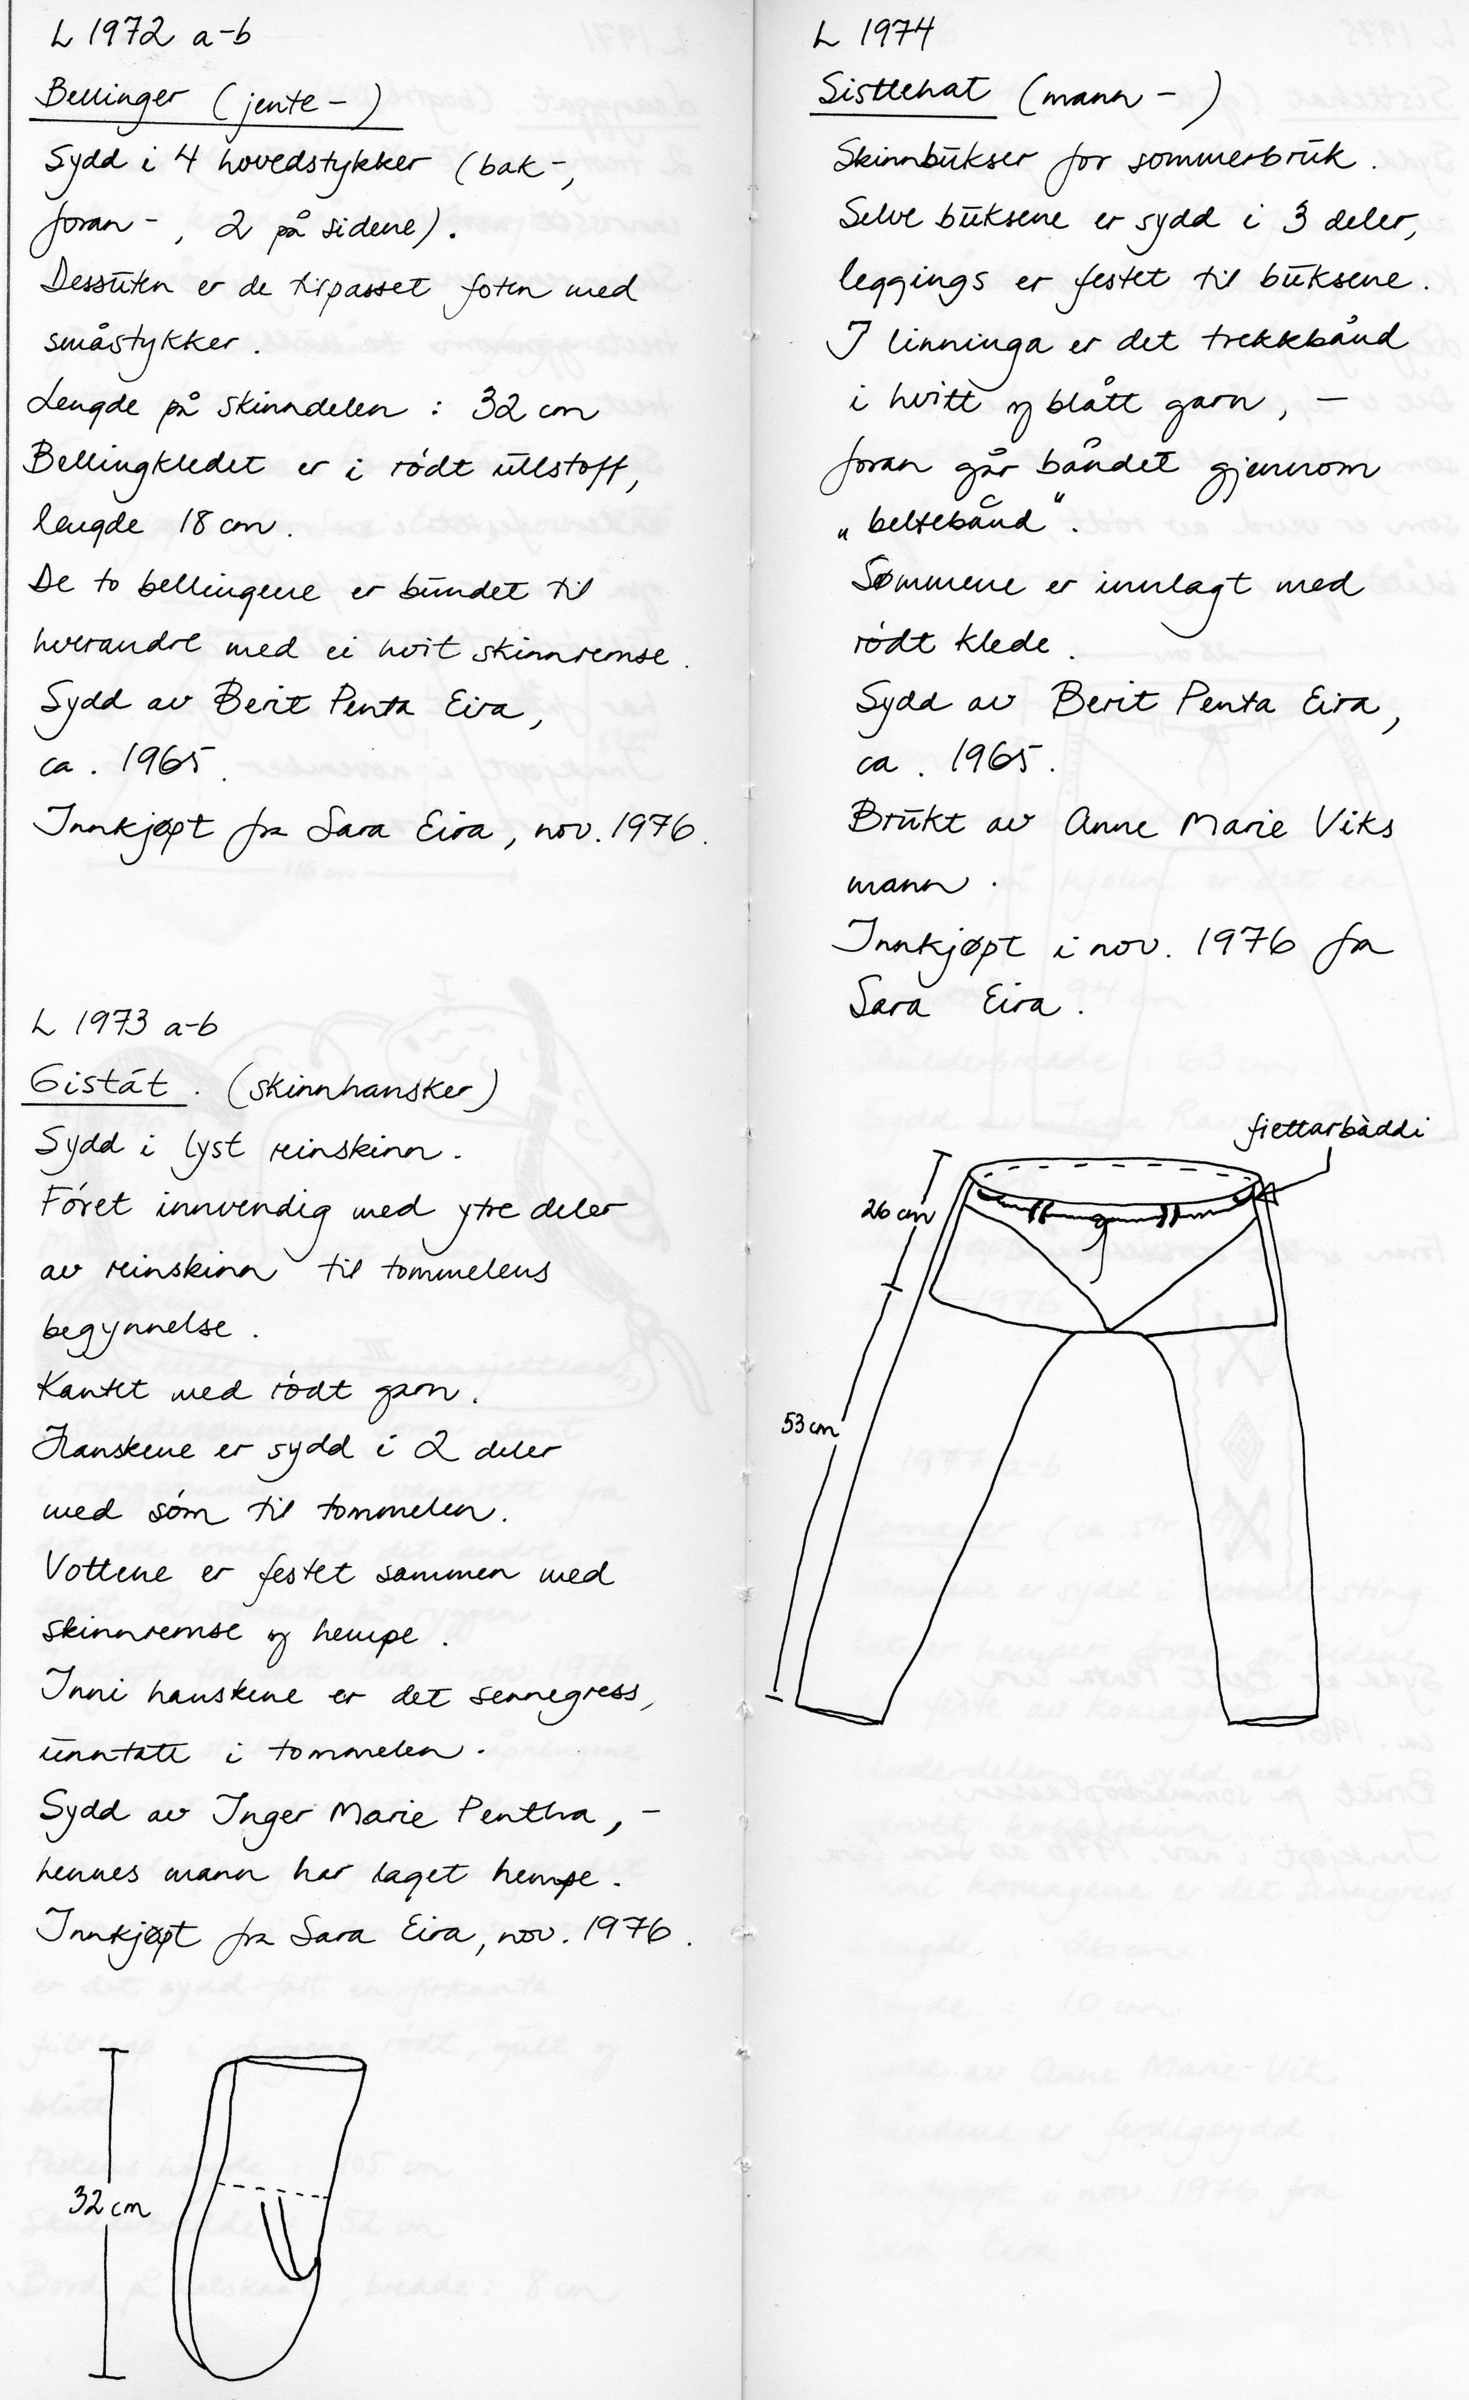 L 1972 a-b
Bellinger (jente-)
Sydd i 4 hovedstykker (bak-,
foran-, 2 på sidene).
Dessuten er de tilpasset foten med
småstykker.
Lengde på skinndelen : 32 cm
Bellingkledet er i rødt ullstoff,
lengde 18 cm.
De to bellingene er bundet til
hverandre med ei hvit skinnremse.
Sydd av Berit Penta Eira,
ca. 1965.
Innkjøpt fra Sara Eira, nov. 1976.
L 1973 a-b
Gistát. (skinnhansker)
Sydd i lyst reinskinn.
Fóret innvendig med ytre deler
av reinskinn til tommelens
begynnelse.
Kantet med rødt garn.
Hanskene er sydd i 2 deler
med søm til tommelen.
Vottene er festet sammen med
skinnremse og hempe.
Inni hanskene er det sennegress,
unntatt i tommelen.
Sydd av Inger Marie Pentha, -
hennes mann har laget hempe.
Innkjøpt fra Sara Eira, nov. 1976.
32 cm
L 1974
Sisttehat (mann-)
Skinnbukser for sommerbruk.
Selve buksene er sydd i 3 deler,
leggings er festet til buksene.
I linninga er det trekkbånd
i hvitt og blått garn, -
foran går båndet gjennom
„beltebånd".
Sømmene er innlagt med
rødt klede.
Sydd av Berit Penta Eira,
ca. 1965.
Brukt av Anne Marie Viks
mann.
Innkjøpt i nov. 1976 fra
Sara Eira.
fiettarbàddi
26 cm
53 cm